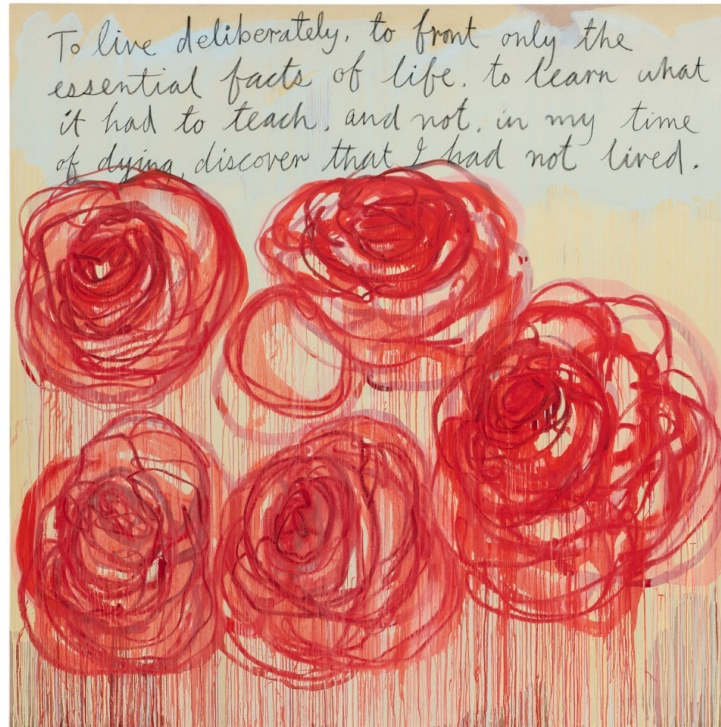 To live deliberately, to front only the
essential facts of life. to learn what
it had to teach, and not, in my time
of dying, discover that I had not lived.